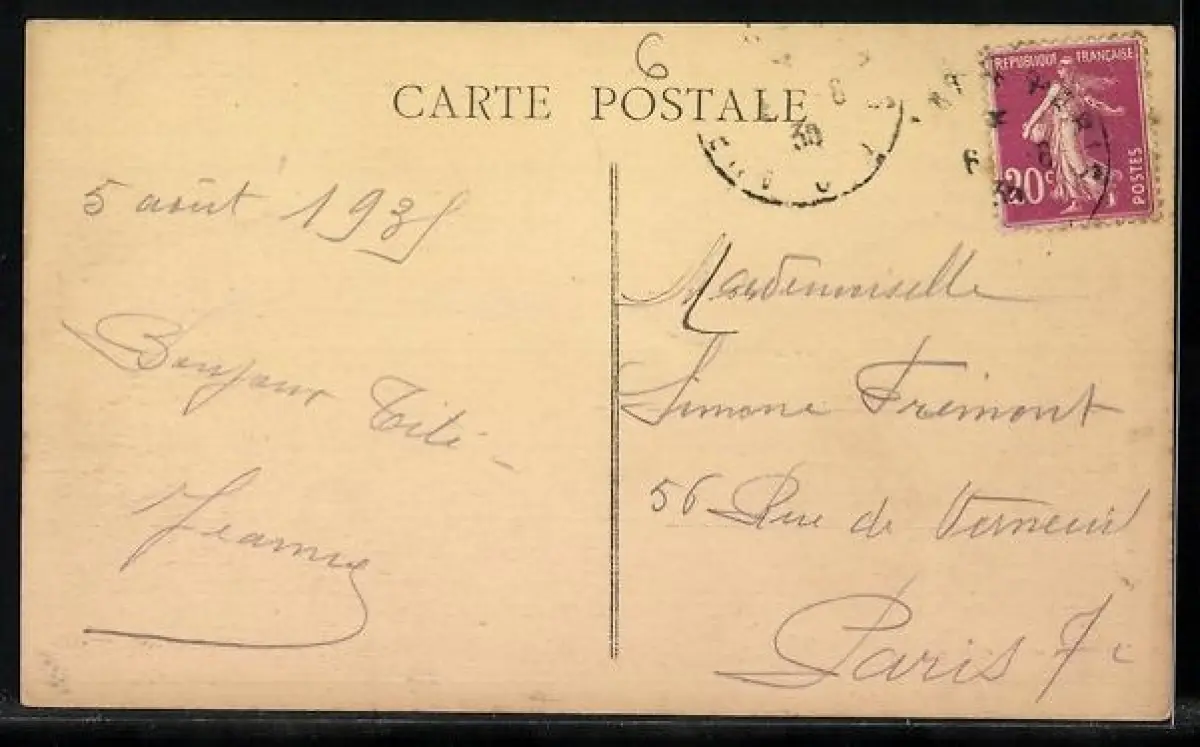 6
CARTE POSTALE
REPUBLIQUE FRANÇAISE
20c
POSTES
6
30
5 août 193
Bonjour Titi -
Jeanne
Mademoiselle
Simone Frémont
56 Rue de Verneuil
Paris 7e